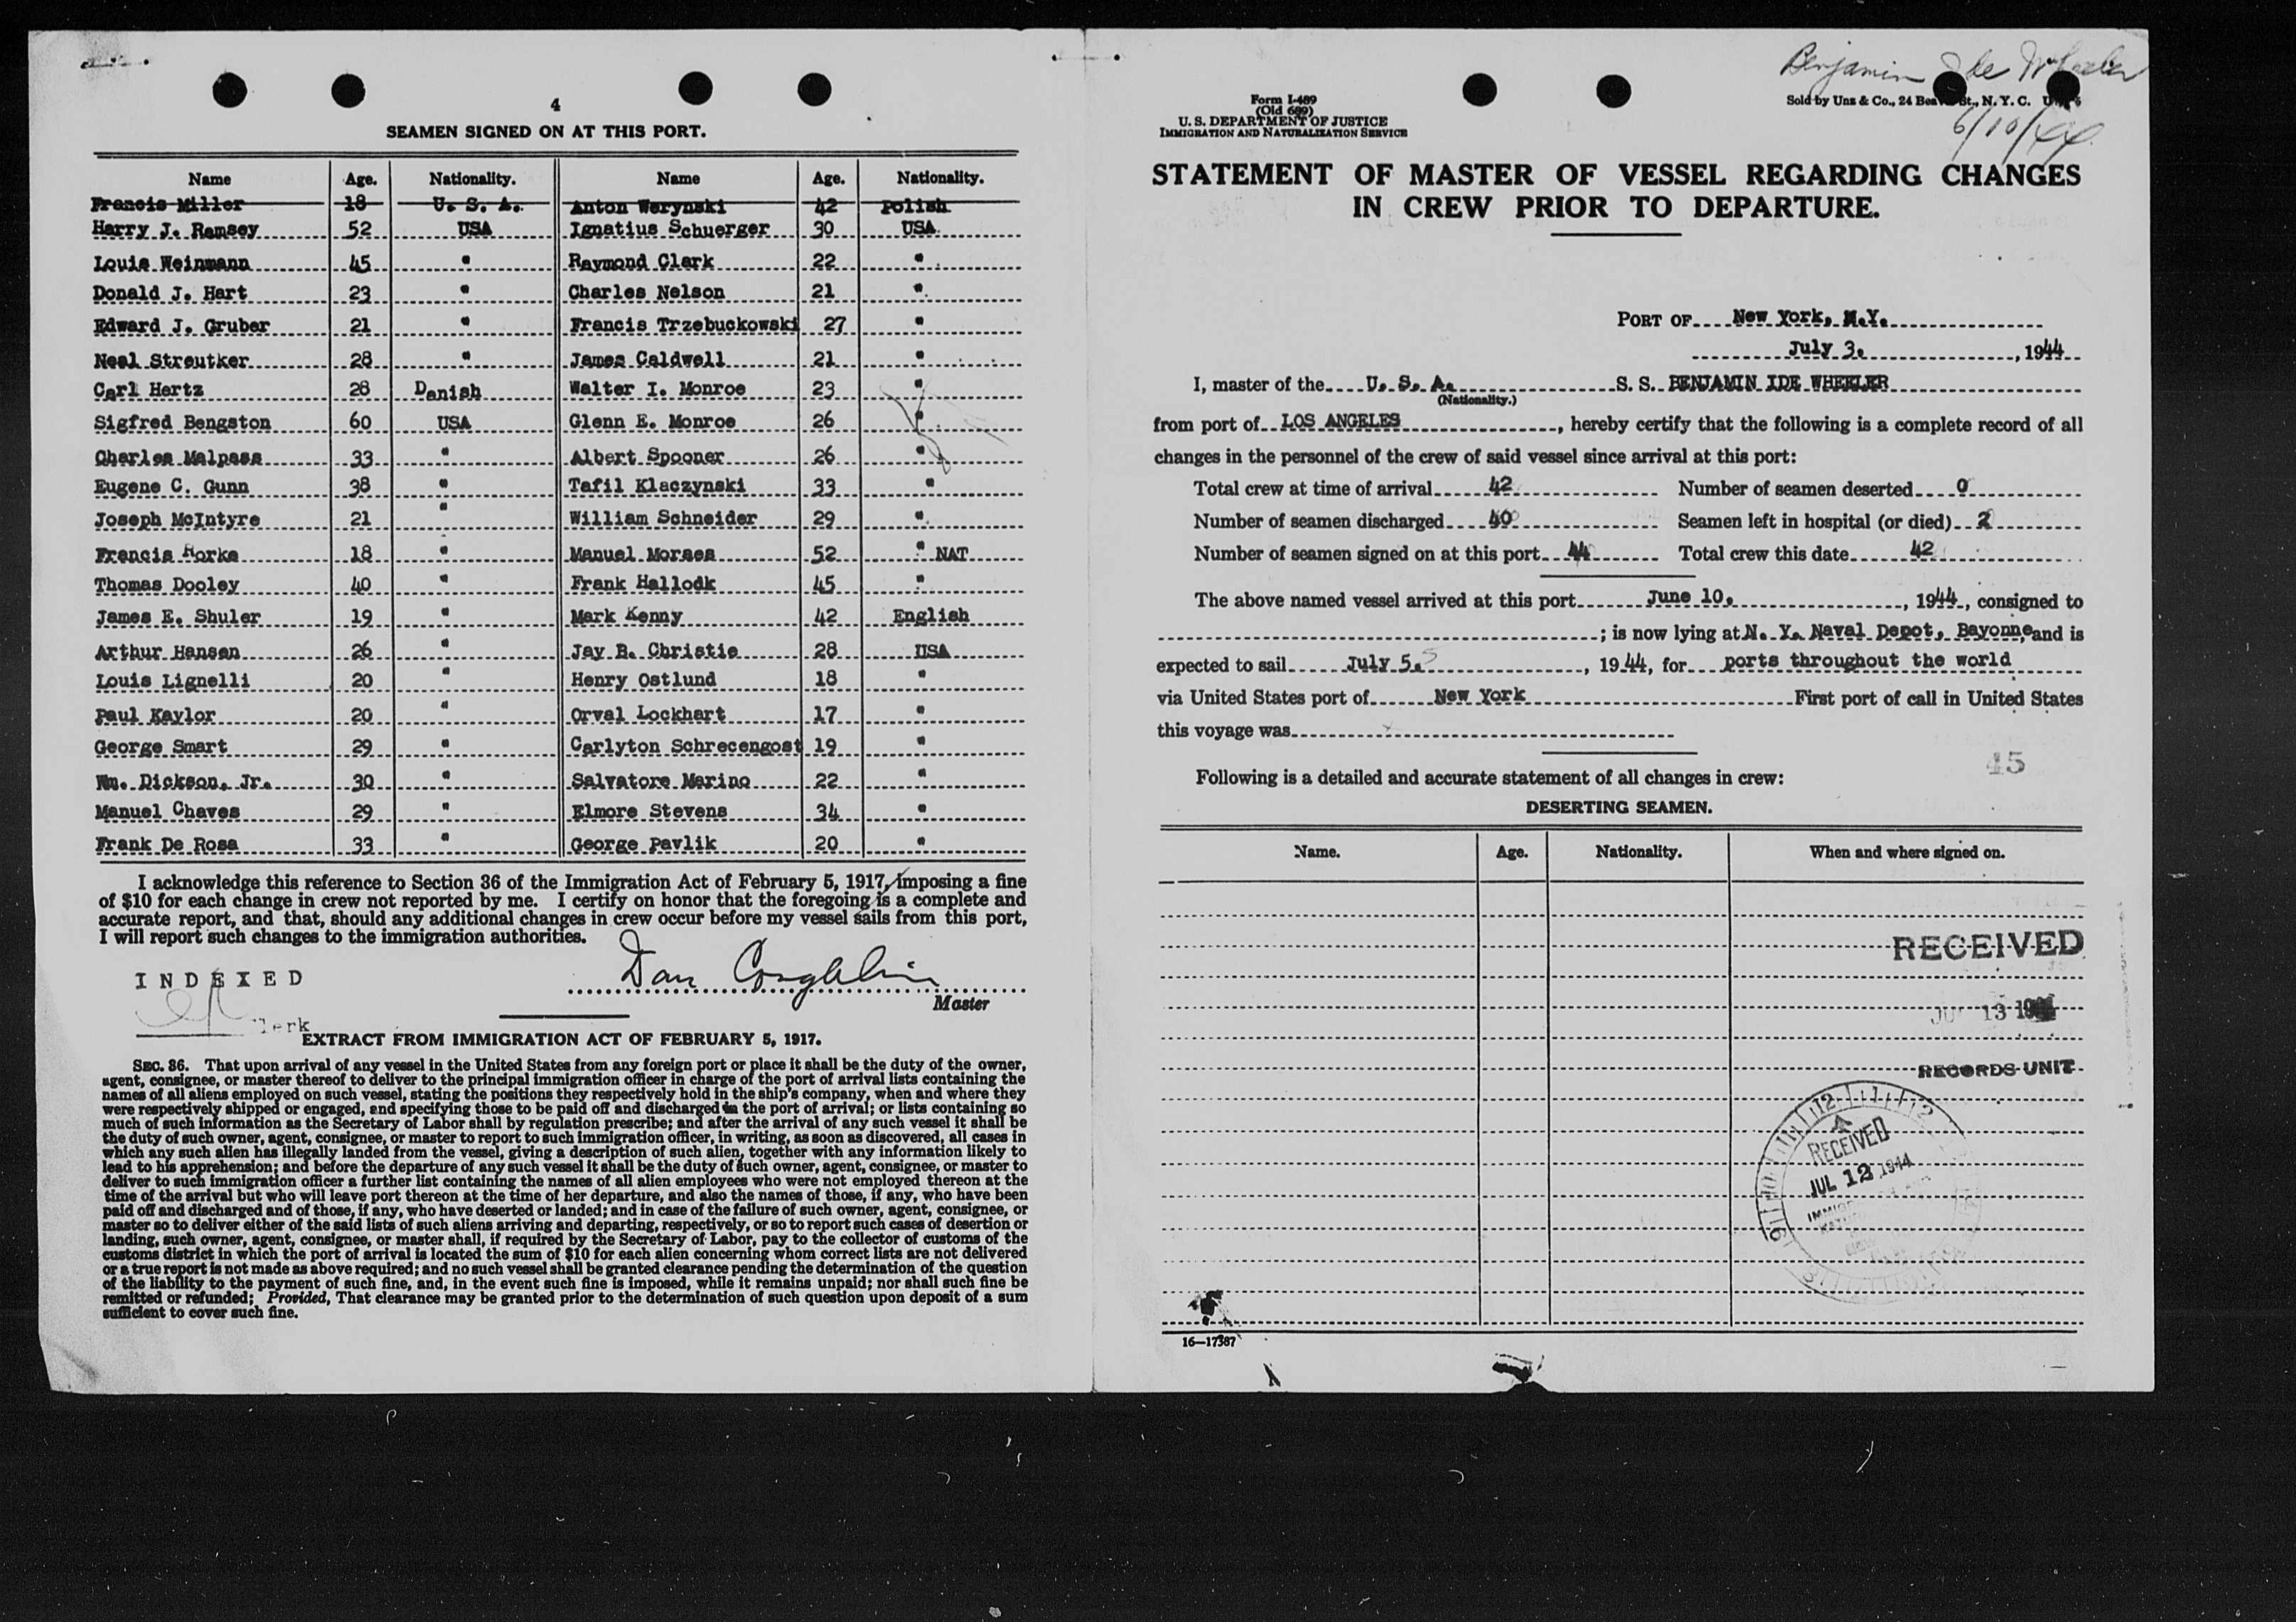 4
SEAMEN SIGNED ON AT THIS PORT.
Name Age. Nationality. Name Age. Nationality.
Francis Miller 18 U. S. A. Anton Werynski 42 Polish
Harry J. Ramsey 52 USA Ignatius Schuerger 30 USA
Louis Weinmann 45 " Raymond Clark 22 "
Donald J. Hart 23 " Charles Nelson 21 "
Edward J. Gruber 21 " Francis Trzebuckowski 27 "
Neal Streutker 28 " James Caldwell 21 "
Carl Hertz 28 Danish Walter I. Monroe 23 "
Sigfred Bengston 60 USA Glenn E. Monroe 26 "
Charles Malpass 33 " Albert Spooner 26 "
Eugene C. Gunn 38 " Tafil Klaczynski 33 "
Joseph McIntyre 21 " William Schneider 29 "
Francis Rorke 18 " Manuel Moraes 52 " NAT
Thomas Dooley 40 " Frank Hallodk 45 "
James E. Shuler 19 " Mark Kenny 42 English
Arthur Hansen 26 " Jay B. Christie 28 USA
Louis Lignelli 20 " Henry Ostlund 18 "
Paul Kaylor 20 " Orval Lockhart 17 "
George Smart 29 " Carlyton Schrecengost 19 "
Wm. Dickson, Jr. 30 " Salvatore Marino 22 "
Manuel Chaves 29 " Elmore Stevens 34 "
Frank De Rosa 33 " George Pavlik 20 "
I acknowledge this reference to Section 36 of the Immigration Act of February 5, 1917, imposing a fine
of $10 for each change in crew not reported by me. I certify on honor that the foregoing is a complete and
accurate report, and that, should any additional changes in crew occur before my vessel sails from this port,
I will report such changes to the immigration authorities.
Dan Coughlin
Master
INDEXED
Clerk
EXTRACT FROM IMMIGRATION ACT OF FEBRUARY 5, 1917.
SEC. 36. That upon arrival of any vessel in the United States from any foreign port or place it shall be the duty of the owner,
agent, consignee, or master thereof to deliver to the principal immigration officer in charge of the port of arrival lists containing the
names of all aliens employed on such vessel, stating the positions they respectively hold in the ship's company, when and where they
were respectively shipped or engaged, and specifying those to be paid off and discharged in the port of arrival; or lists containing so
much of such information as the Secretary of Labor shall by regulation prescribe; and after the arrival of any such vessel it shall be
the duty of such owner, agent, consignee, or master to report to such immigration officer, in writing, as soon as discovered, all cases in
which any such alien has illegally landed from the vessel, giving a description of such alien, together with any information likely to
lead to his apprehension; and before the departure of any such vessel it shall be the duty of such owner, agent, consignee, or master to
deliver to such immigration officer a further list containing the names of all alien employees who were not employed thereon at the
time of the arrival but who will leave port thereon at the time of her departure, and also the names of those, if any, who have been
paid off and discharged and of those, if any, who have deserted or landed; and in case of the failure of such owner, agent, consignee, or
master so to deliver either of the said lists of such aliens arriving and departing, respectively, or so to report such cases of desertion or
landing, such owner, agent, consignee, or master shall, if required by the Secretary of Labor, pay to the collector of customs of the
customs district in which the port of arrival is located the sum of $10 for each alien concerning whom correct lists are not delivered
or a true report is not made as above required; and no such vessel shall be granted clearance pending the determination of the question
of the liability to the payment of such fine, and, in the event such fine is imposed, while it remains unpaid; nor shall such fine be
remitted or refunded; Provided, That clearance may be granted prior to the determination of such question upon deposit of a sum
sufficient to cover such fine.
Benjamin Ide Wheeler
6/10/44
Form I-489
(Old 689)
U. S. DEPARTMENT OF JUSTICE
IMMIGRATION AND NATURALIZATION SERVICE
Sold by Unz & Co., 24 Beaver St., N. Y. C.
STATEMENT OF MASTER OF VESSEL REGARDING CHANGES
IN CREW PRIOR TO DEPARTURE.
PORT OF New York, N.Y.
July 3, , 1944
I, master of the U. S. A. S. S. BENJAMIN IDE WHEELER
(Nationality.)
from port of LOS ANGELES , hereby certify that the following is a complete record of all
changes in the personnel of the crew of said vessel since arrival at this port:
Total crew at time of arrival 42 Number of seamen deserted 0
Number of seamen discharged 40 Seamen left in hospital (or died) 2
Number of seamen signed on at this port 44 Total crew this date 42
The above named vessel arrived at this port June 10, , 1944, consigned to
; is now lying at N. Y. Naval Depot, Bayonne, and is
expected to sail July 5, 5 , 1944, for ports throughout the world
via United States port of New York First port of call in United States
this voyage was
45
Following is a detailed and accurate statement of all changes in crew:
DESERTING SEAMEN.
Name. Age. Nationality. When and where signed on.
RECEIVED
13 1944
RECORDS UNIT
RECEIVED
JUL 12 1944
16—17387